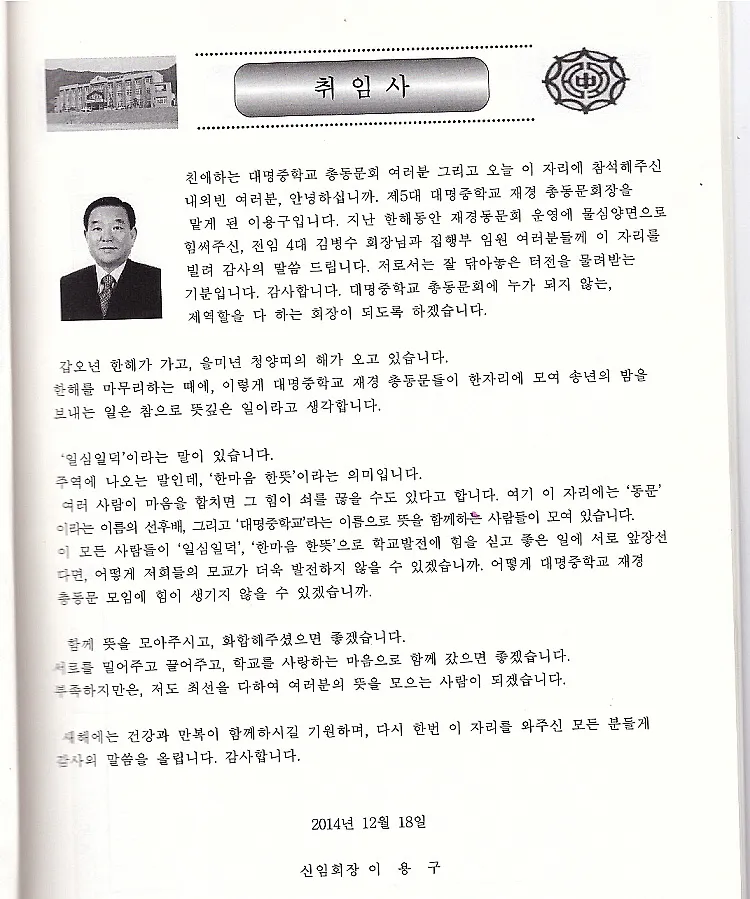 취 임 사
中
친애하는 대명중학교 총동문회 여러분 그리고 오늘 이 자리에 참석해주신
내외빈 여러분, 안녕하십니까. 제5대 대명중학교 재경 총동문회장을
맡게 된 이용구입니다. 지난 한해동안 재경동문회 운영에 물심양면으로
힘써주신, 전임 4대 김병수 회장님과 집행부 임원 여러분들께 이 자리를
빌려 감사의 말씀 드립니다. 저로서는 잘 닦아놓은 터전을 물려받는
기분입니다. 감사합니다. 대명중학교 총동문회에 누가 되지 않는,
제역할을 다 하는 회장이 되도록 하겠습니다.
갑오년 한해가 가고, 을미년 청양띠의 해가 오고 있습니다.
한해를 마무리하는 때에, 이렇게 대명중학교 재경 총동문들이 한자리에 모여 송년의 밤을
보내는 일은 참으로 뜻깊은 일이라고 생각합니다.
'일심일덕'이라는 말이 있습니다.
주역에 나오는 말인데, '한마음 한뜻'이라는 의미입니다.
여러 사람이 마음을 합치면 그 힘이 쇠를 끊을 수도 있다고 합니다. 여기 이 자리에는 '동문'
이라는 이름의 선후배, 그리고 '대명중학교'라는 이름으로 뜻을 함께하는 사람들이 모여 있습니다.
이 모든 사람들이 '일심일덕', '한마음 한뜻'으로 학교발전에 힘을 싣고 좋은 일에 서로 앞장선
다면, 어떻게 저희들의 모교가 더욱 발전하지 않을 수 있겠습니까. 어떻게 대명중학교 재경
총동문 모임에 힘이 생기지 않을 수 있겠습니까.
함께 뜻을 모아주시고, 화합해주셨으면 좋겠습니다.
서로를 밀어주고 끌어주고, 학교를 사랑하는 마음으로 함께 갔으면 좋겠습니다.
부족하지만은, 저도 최선을 다하여 여러분의 뜻을 모으는 사람이 되겠습니다.
새해에는 건강과 만복이 함께하시길 기원하며, 다시 한번 이 자리를 와주신 모든 분들게
감사의 말씀을 올립니다. 감사합니다.
2014년 12월 18일
신임회장 이 용 구